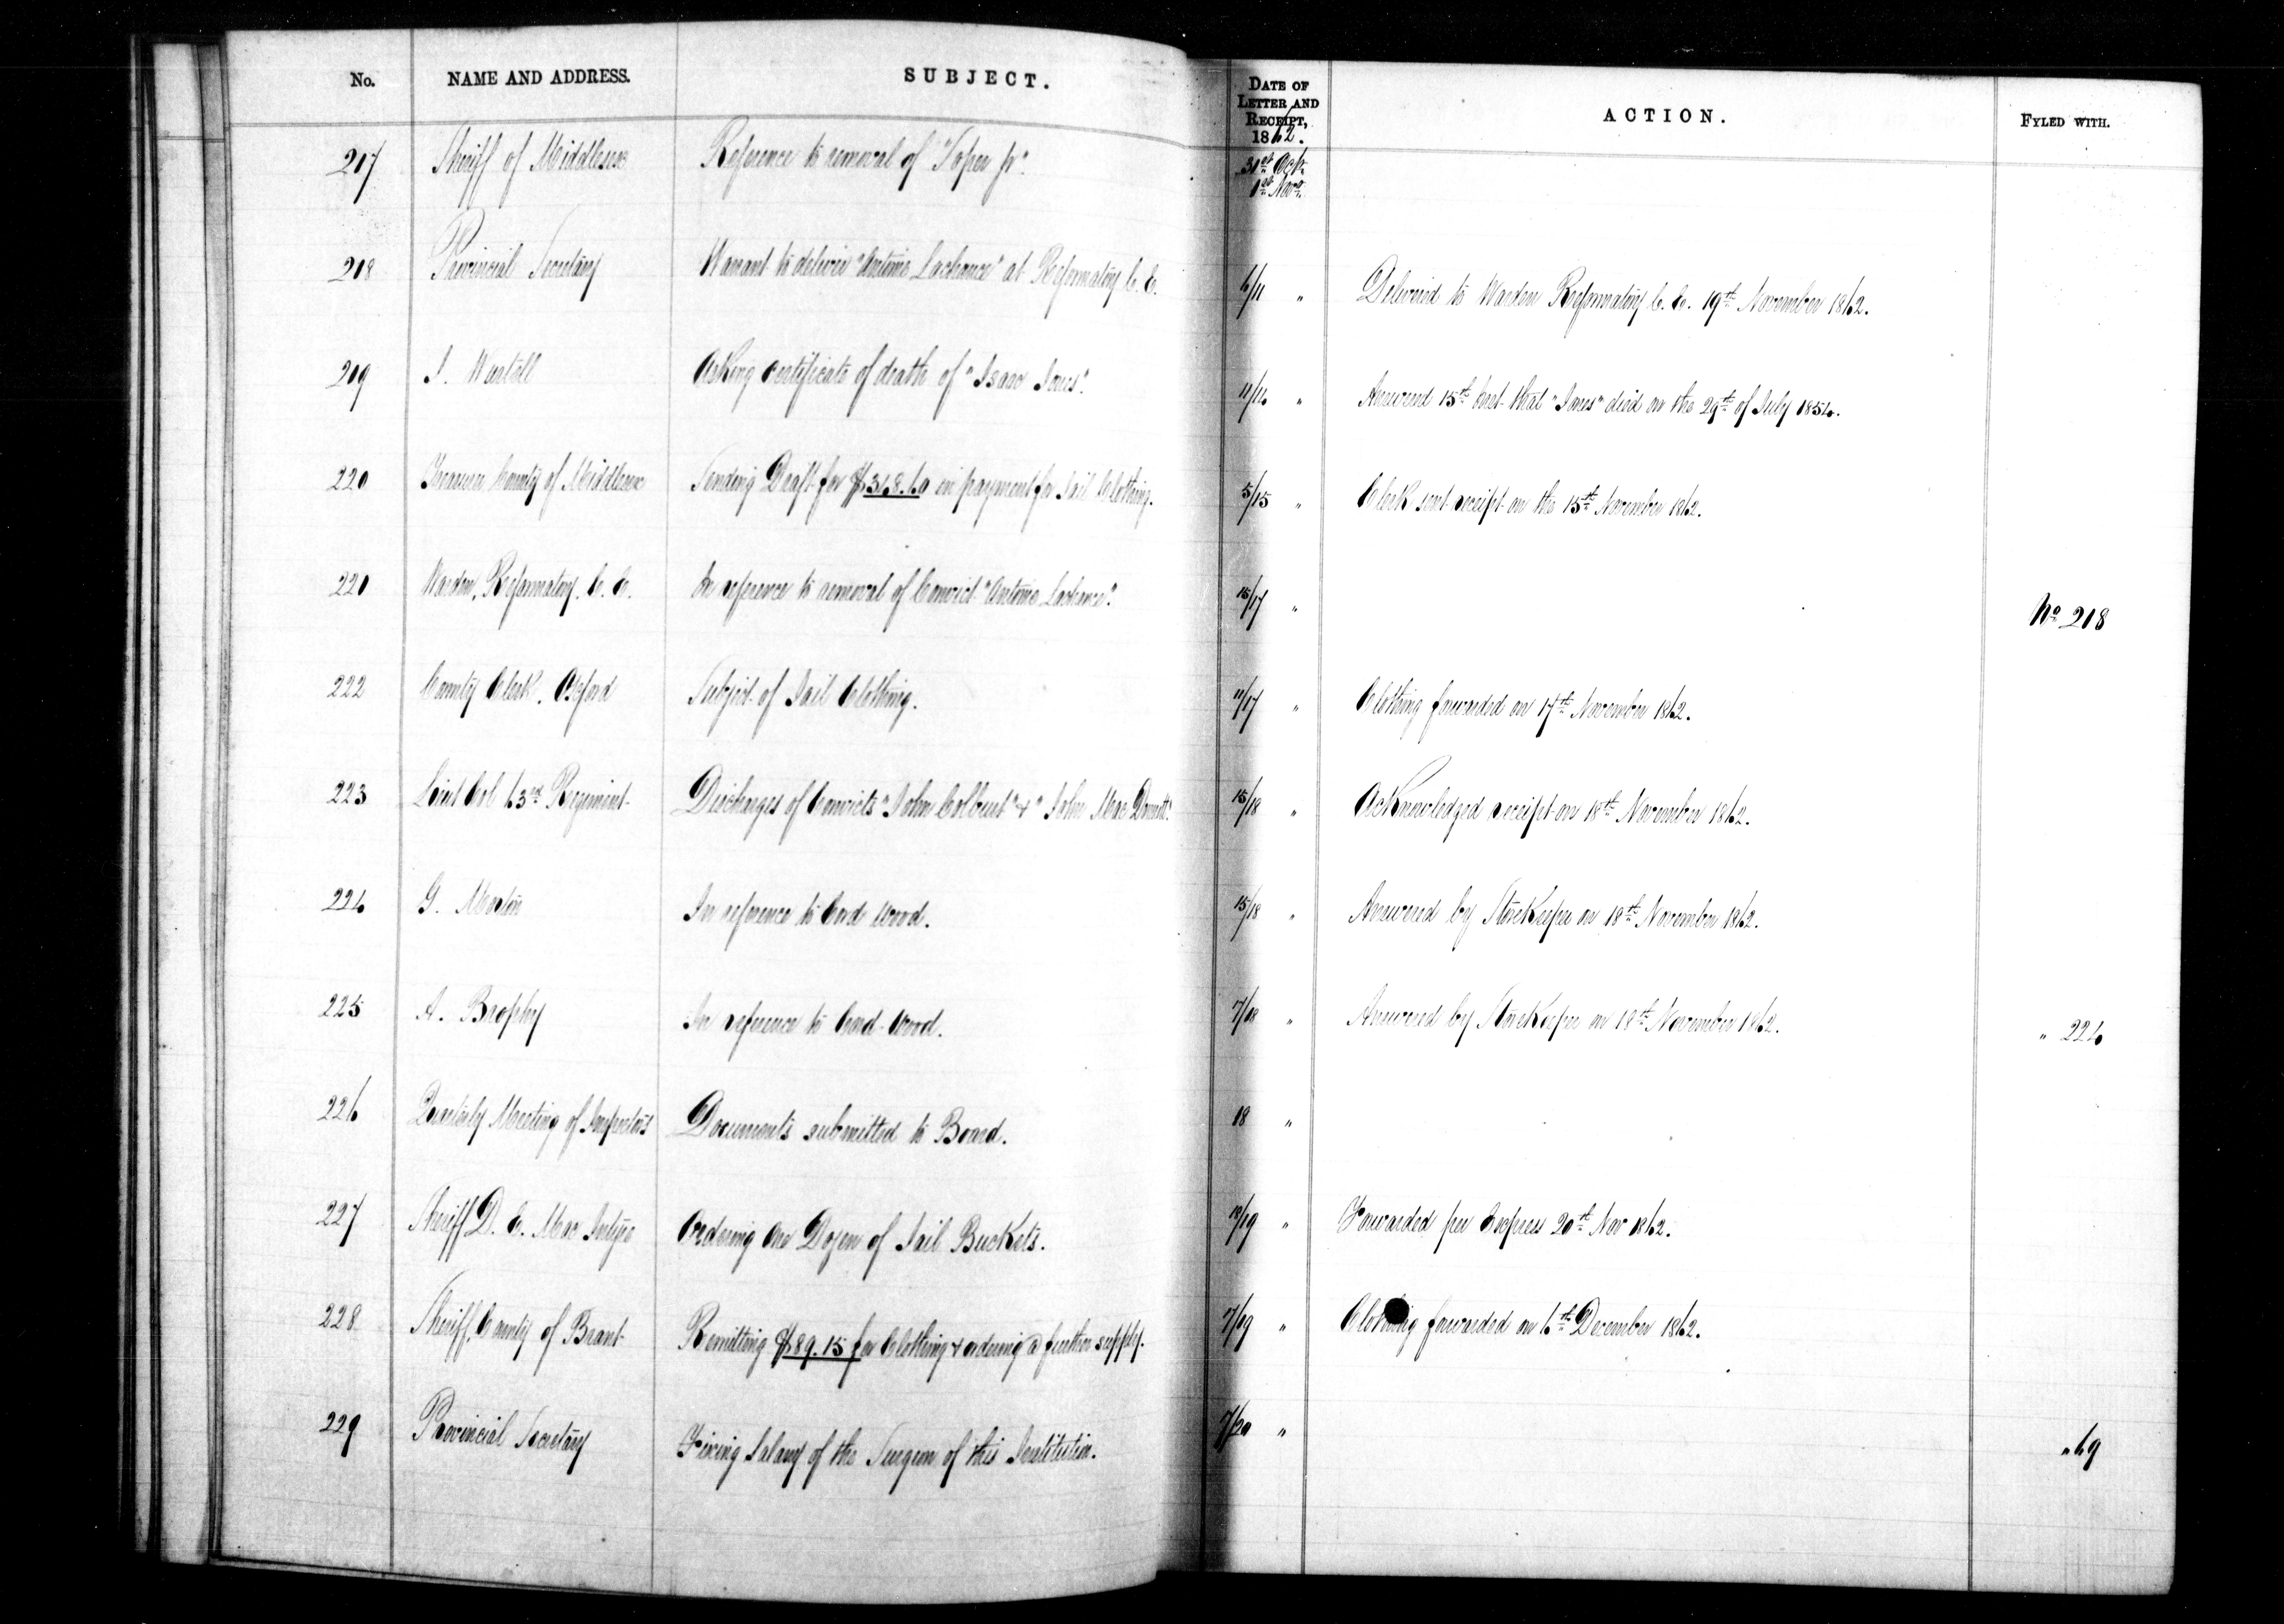 No. NAME AND ADDRESS. SUBJECT. DATE OF LETTER AND RECEIPT, 1862. ACTION. FYLED WITH.
217 Sheriff of Middlesex Reference to removal of "Soper Jr". 31st Oct. 1st Nov.
218 Provincial Secretary Warrant to deliver "Antoine Lachance" at Reformatory C. E. 6/11 " Delivered to Warden Reformatory C. E. 19th November 1862.
219 J. Wartell Asking certificate of death of "Isaac Jones". 11/14 " Answered 15th inst. that "Jones" died on the 29th of July 1854.
220 Treasurer County of Middlesex Sending Draft for $348.60 in payment for Jail Clothing. 5/15 " Clerk sent receipt on the 15th November 1862.
221 Warden, Reformatory. C. E. In reference to removal of Convict "Antoine Lachance". 15/17 " No 218
222 County Clerk. Oxford Subject of Jail Clothing. 11/17 " Clothing forwarded on 17th November 1862.
223 Lieut Col 63rd Regiment Discharges of Convicts "John Colbert" & "John Mac Donnell". 15/18 " Acknowledged receipt on 18th November 1862.
224 G. Morton In reference to Cord Wood. 15/18 " Answered by StoreKeeper on 18th November 1862.
225 A. Brophy In reference to Cord-Wood. 7/18 " Answered by StoreKeeper on 18th November 1862. " 224
226 Quarterly Meeting of Inspectors Documents submitted to Board. 18 "
227 Sheriff D. E. Mac Intyre Ordering One Dozen of Jail Buckets. 18/19 " Forwarded per Express 20th Nov 1862.
228 Sheriff, County of Brant Remitting $89.15 for Clothing & ordering a further supply. 7/19 " Clothing forwarded on 6th December 1862.
229 Provincial Secretary Fixing Salary of the Surgeon of this Institution. 7/20 " " 69